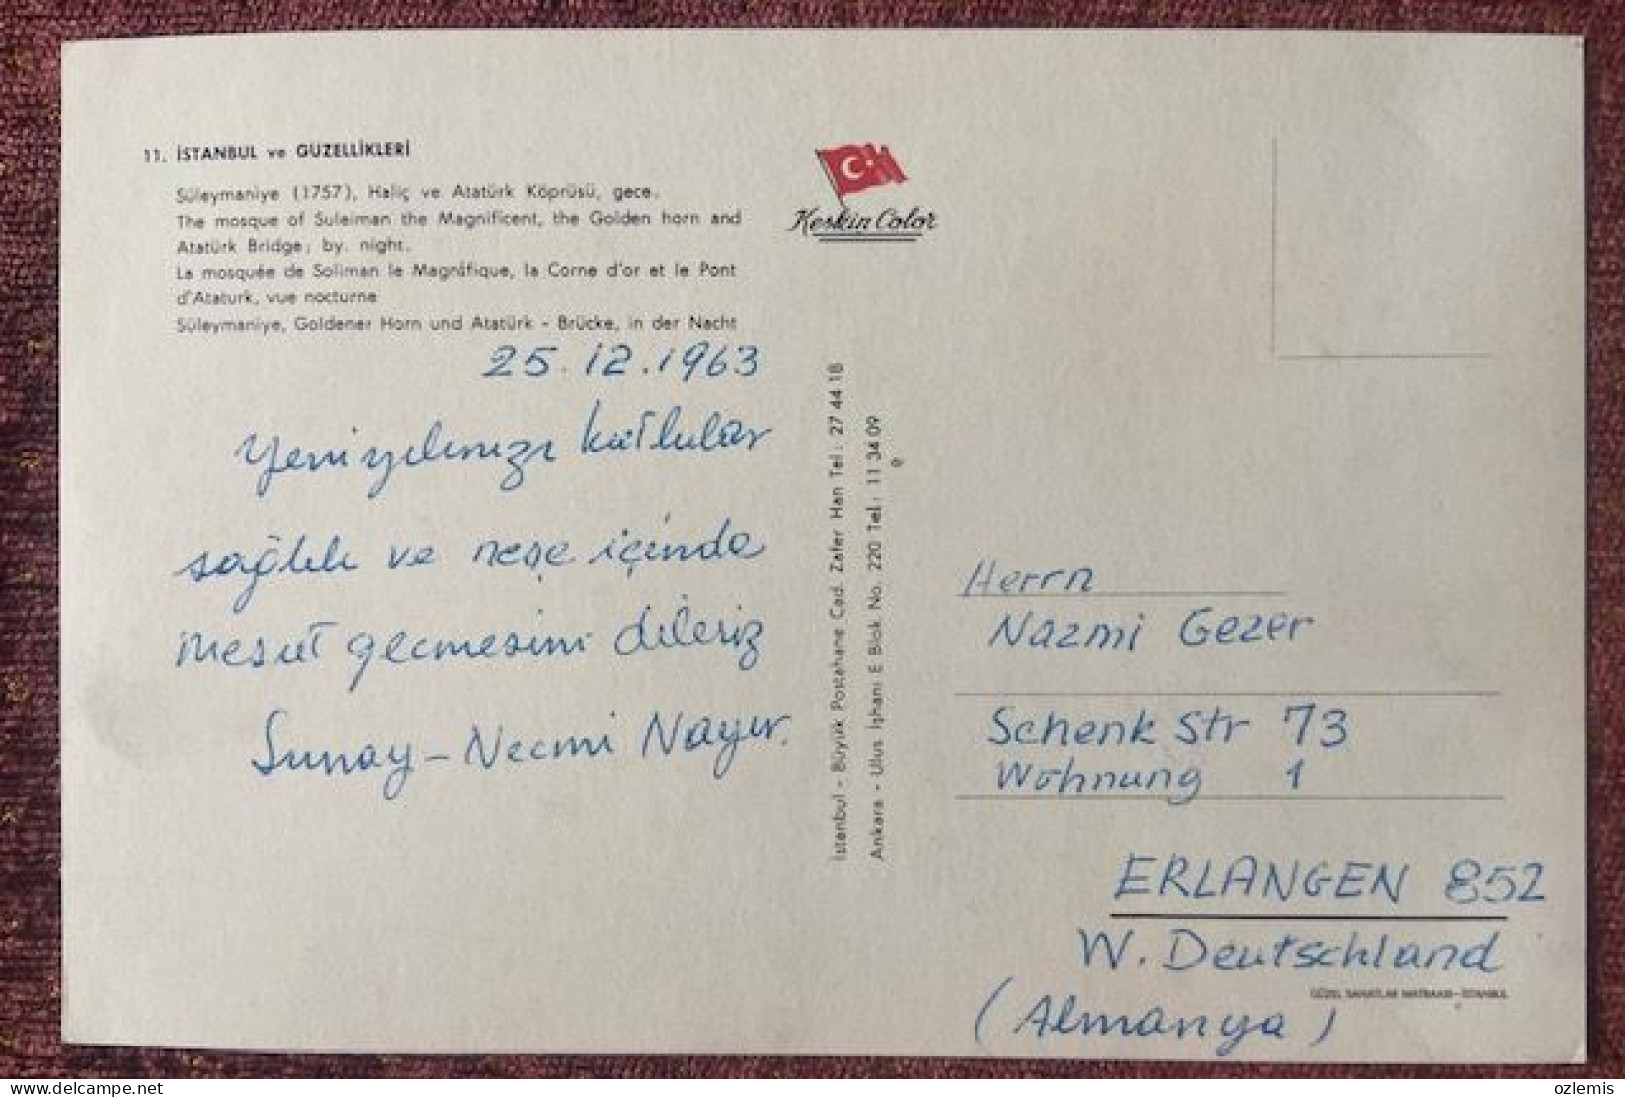 11. İSTANBUL ve GUZELLİKLERİ
Süleymaniye (1757), Haliç ve Atatürk Köprüsü, gece.
The mosque of Suleiman the Magnificent, the Golden horn and
Atatürk Bridge; by. night.
La mosquée de Soliman le Magnâfique, la Corne d'or et le Pont
d'Ataturk, vue nocturne
Süleymaniye, Goldener Horn und Atatürk - Brücke, in der Nacht
25.12.1963
Yeni yılınızı kutlular
sağlık ve neşe içinde
mesut geçmesini dileriz
Sunay - Necmi Nayır.
Keskin Color
İstanbul - Büyük Postahane Cad. Zafer Han Tel: 27 44 18
Ankara - Ulus İşhanı E Blok No. 220 Tel: 11 34 09
Herrn
Nazmi Gezer
Schenk Str 73
Wohnung 1
ERLANGEN 852
W. Deutschland
GÜZEL SANATLAR MATBAASI - İSTANBUL
(Almanya)
ozlemis